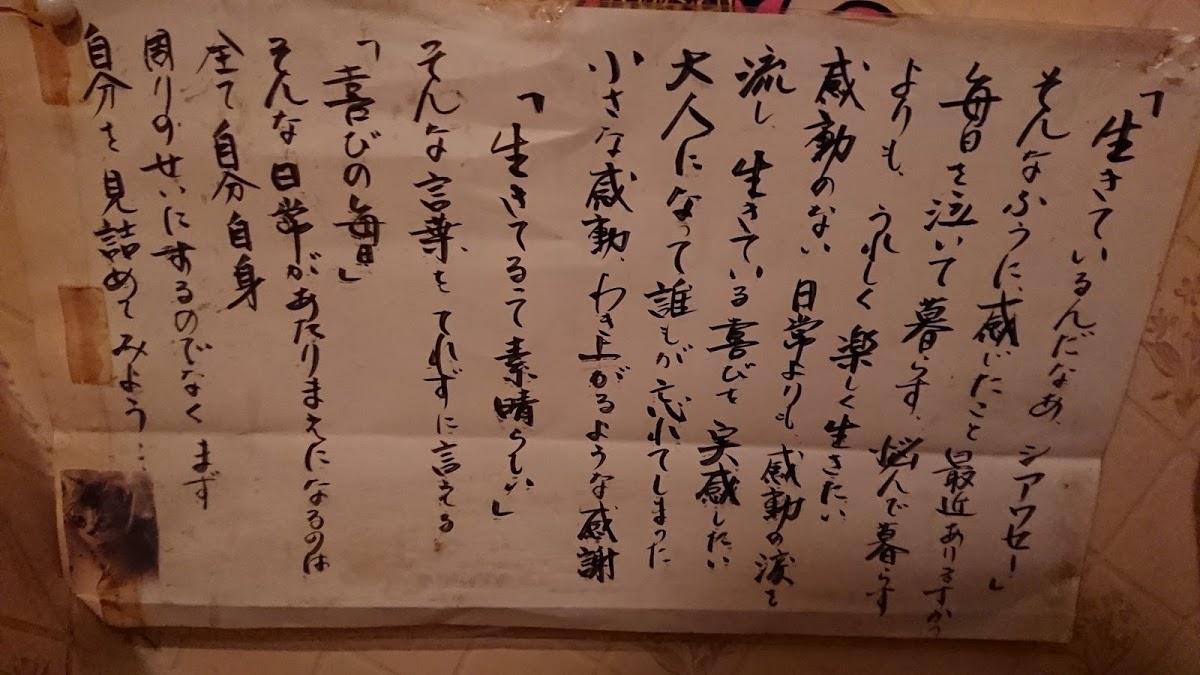 「生きているんだなあ、シアワセー」
そんなふうに、感じたこと最近ありますか?
毎日を泣いて暮らす、悩んで暮らす
よりも、うれしく楽しく生きたい
感動のない日常よりも、感動の涙を
流し、生きている喜びを実感したい
大人になって誰もが忘れてしまった
小さな感動、わき上がるような感謝
「生きてるって素晴らしい」
そんな言葉をてれずに言える
「喜びの毎日」
そんな日常があたりまえになるのは
全て自分自身
周りのせいにするのでなくまず
自分を見詰めてみよう…